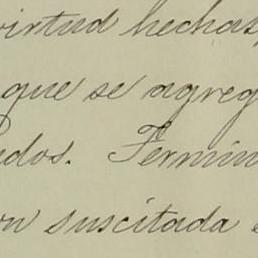 virtud hechas,
que se agreg
dos. Termin
on suscitada